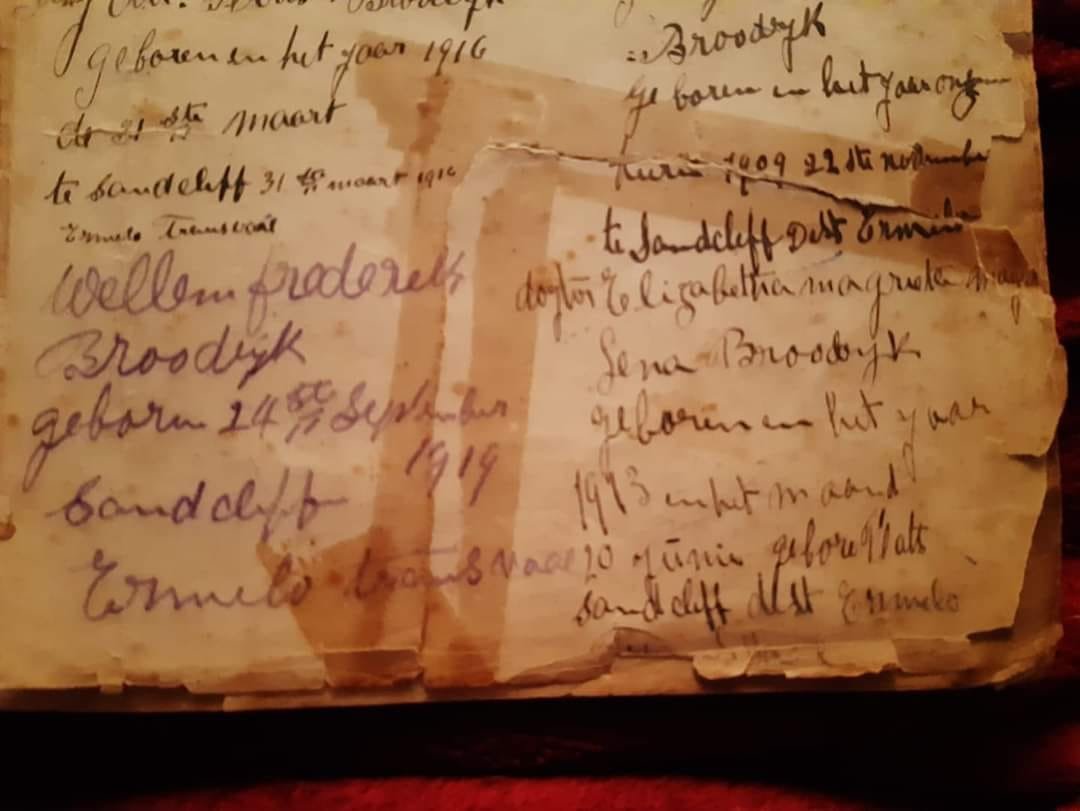 Broodryk
geboren en het jaar 1916
de 31 ste maart
te Sandcliff 31 ste maart 1916
Ermelo Transvaal
Wellem frederek
Broodryk
geboren 24 ste September
1919
Sandcliff
Ermelo transvaal
Broodryk
geboren en het jaar onz
1909 22 ste november
te Sandcliff Dest Ermelo
dogtor Elizabetha magrieta
Sena Broodryk
geboren en het yaar
1913 en het maand
20 Junie gebore Plats
Sandcliff dest Ermelo